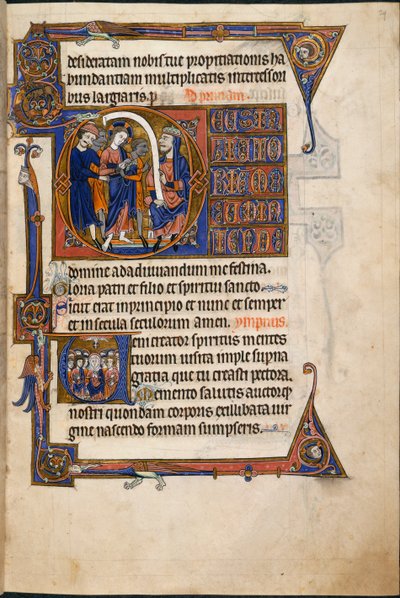 desideratam nobis tue propitiationis ha
bundantiam multiplicatis intercessori
bus largiaris. p
DEUS IN
TENDE
domine ad adiuuandum me festina.
Gloria patri et filio et spiritui sancto
Sicut erat in principio et nunc et semper
et in secula seculorum amen. ympnus.
Veni creator spiritus mentes
tuorum uisita imple supna
gratia, que tu creasti pectora.
Memento salutis auctorq
nostri quondam corporis ex illibata uir
gine nascendo formam sumpseris.